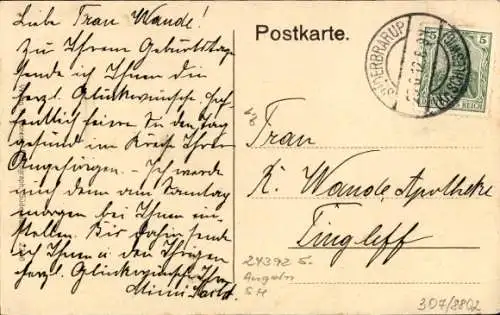 Liebe Frau Wande!
Zu Ihrem Geburtstage
sende ich Ihnen die
herzl. Glückwünsche. Hof-
fentlich feiern Sie den Tag
gesund im Kreise Ihrer
Angehörigen. – Ich werde
mich dann am Sonntag
morgen bei Ihnen ein-
stellen. Bis dahin sende
ich Ihnen u. den Ihrigen
herzl. Glückwünsche Ihre
Mimi
Postkarte.
SÜDERBRARUP
5
REICH
Frau
K. Wande, Apotheke
Tingleff
24392 S.
Angeln
SH
307/8802